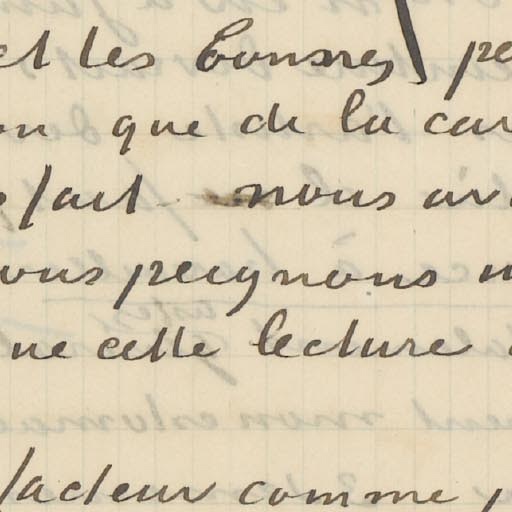 et les bonnes pe
on que de la car
fait nous av
ous peignons
ue cette lecture
facteur comme